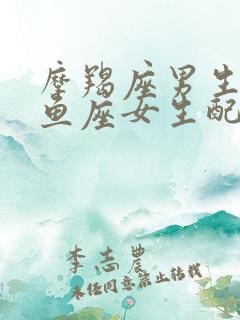 摩羯座男生
鱼座女生配
李志农
未经同意禁止转载